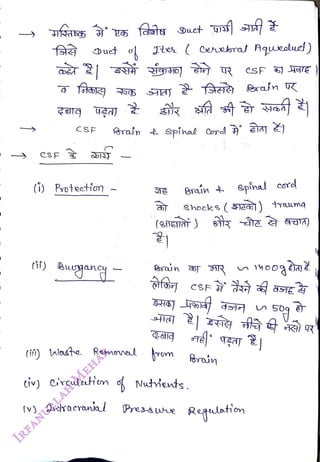 → मस्तिष्क में एक विशेष Duct पायी जाती है
जिसे Duct of Iter ( Cerebral Aqueduct )
कहते है। इसमें संक्रमण होने पर CSF का प्रवाह
व निकास रूक जाता है जिससे Brain पर
दबाव पड़ता है और मौत भी हो सकती है।
→ CSF Brain & Spinal Cord में होता है।
→ CSF के कार्य -
(i) Protection - यह Brain & Spinal cord
को Shocks ( झटकों ) trauma
(आघातों ) और चोट से बचाता
है।
(ii) Buoyancy - Brain का भार ~ 1400g होता है
लेकिन CSF में तैरने की वजह से
इसका प्रभावी वजन ~ 50g हो
जाता है। इससे नीचे की नसो पर
दबाव नहीं पड़ता है।
(iii) Waste Removal from Brain
(iv) Circulation of Nutrients.
(v) Intracranial Pressure Regulation